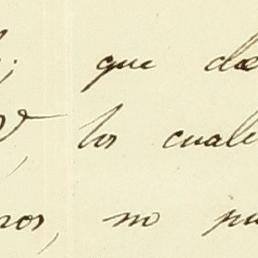 ; que da
los cuale
ros, no pu